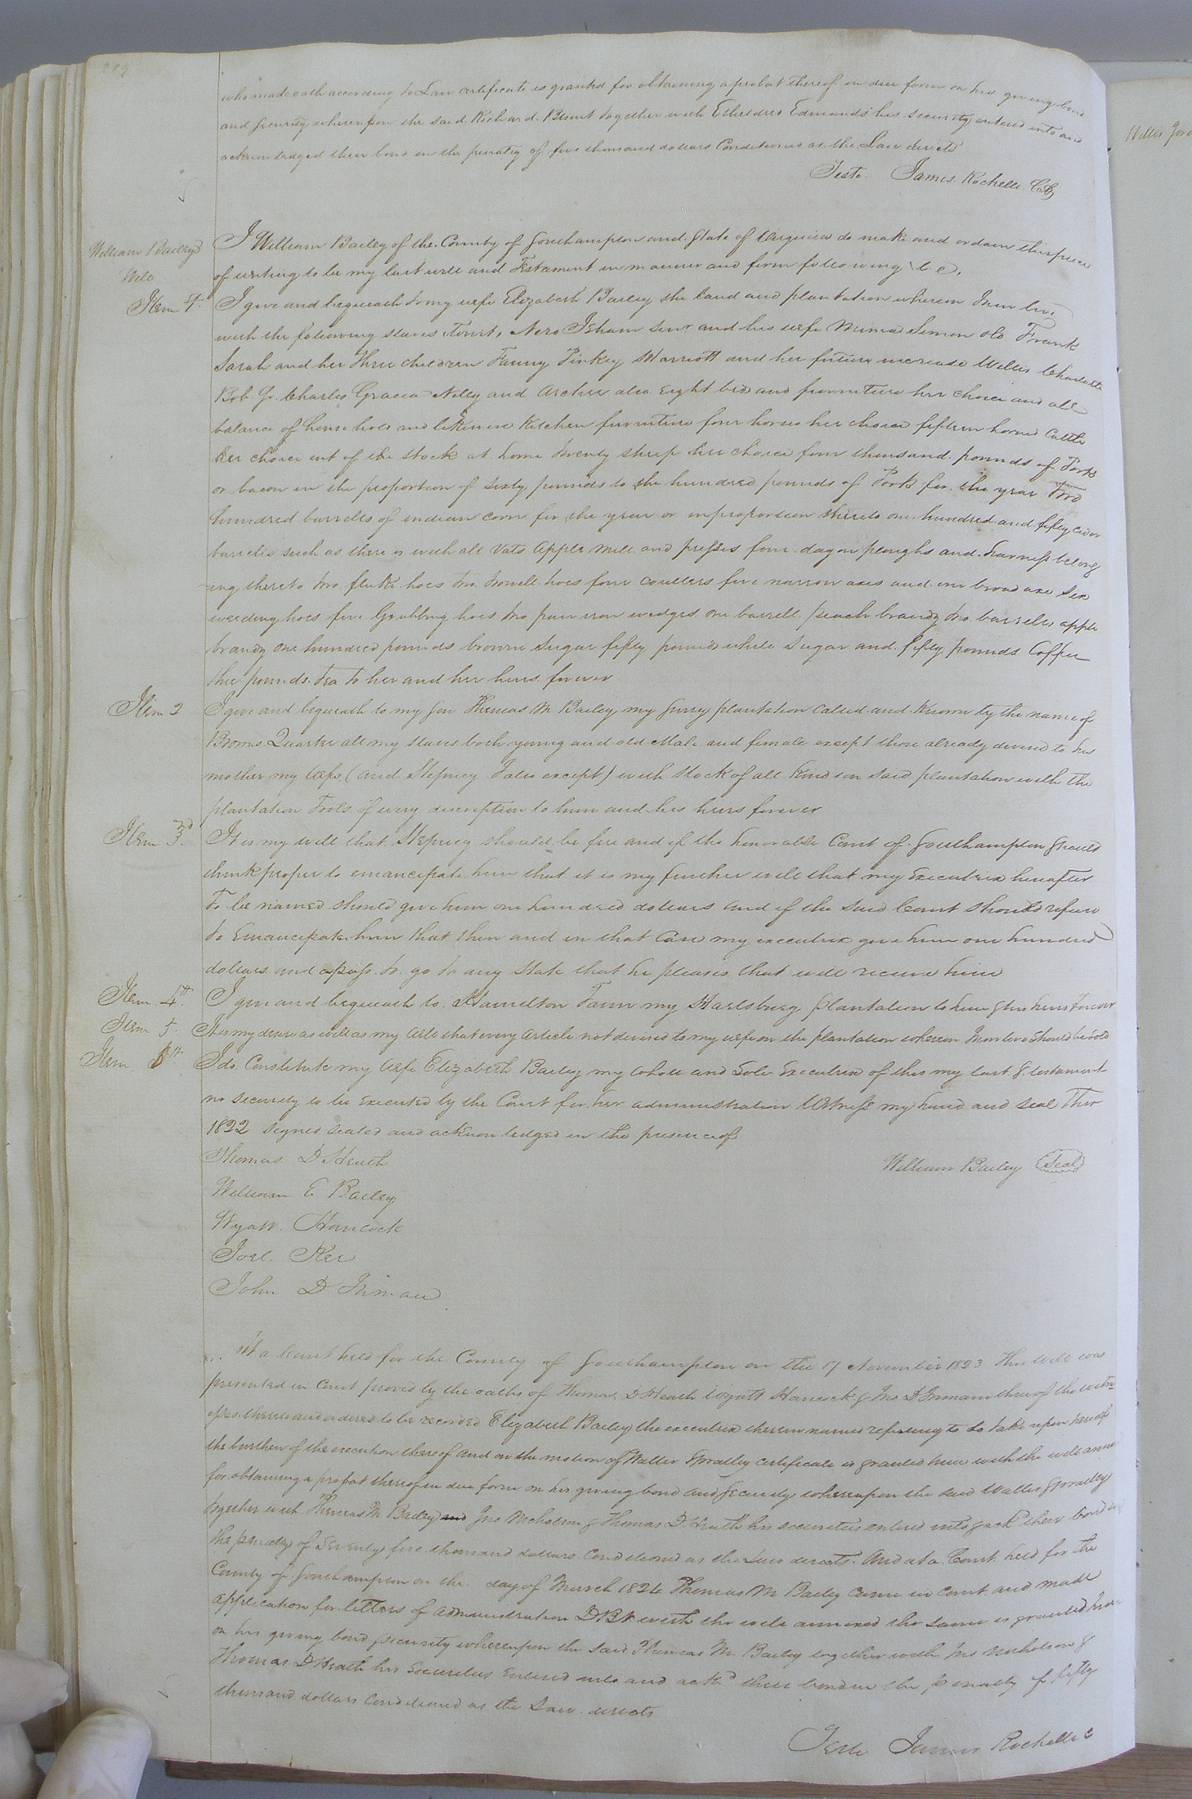 who made oath according to Law certificate is granted for obtaining a probat thereof in due form on his giving bond
and security whereupon the said Richard Blunt together with Etheldred Edmunds his security entered into and
acknowledged their bond in the penalty of five thousand dollars Conditioned as the Law directs
Teste James Rochelle
William Bailey's
Will
I William Bailey of the County of Southampton and State of Virginia do make and ordain this piece
of writing to be my last will and Testament in manner and form following
Item 1st
I give and bequeath to my wife Elizabeth Bailey the land and plantation whereon I now live
with the following slaves Nero Isham Senr and his wife Simon old Frank
Sarah and her three children Fanny Pinkey Harriott and her future increase Willis Charlotte
Bob Charles Nelly and Archer also Eight beds and furniture her choice and all
balance of household and likewise Kitchen furniture four horses her choice fifteen horned Cattle
her choice out of the stock at home twenty sheep her choice four thousand pounds of Pork
or bacon in the proportion of sixty pounds to the hundred pounds of Pork for the year Two
hundred barrells of indian corn for the year or in proportion thereto one hundred and fifty cider
barrells such as there is with all vats apple mill and presses four dagon ploughs and harness belong
ing thereto two fluke hoes two trowell hoes four coulters five narrow axes and one broad axe Six
weeding hoes five Grubbing hoes two pair iron wedges one barrell peach brandy two barrells apple
brandy one hundred pounds brown Sugar fifty pounds white Sugar and fifty pounds Coffee
three pounds tea to her and her heirs forever
Item 2
I give and bequeath to my son Thomas M Bailey my Surry plantation called and known by the name of
Browns Quarter all my slaves both young and old Male and female except those already devised to his
mother my wife (and Stepney except) with stock of all kinds on said plantation with the
plantation Tools of every description to him and his heirs forever
Item 3rd
It is my will that Stepney should be free and if the honorable Court of Southampton should
think proper to emancipate him that it is my further will that my Executrix hereafter
To be named should give him one hundred dollars and if the said Court should refuse
to Emancipate him that then and in that Case my executrix give him one hundred
dollars and a pass to go to any State that he pleases that will receive him
Item 4th
I give and bequeath to Hamelton my plantation to him & his heirs Forever
Item 5
It is my desire as well as my will that every article not devised to my wife on the plantation whereon I now live should be sold
Item 6th
I do Constitute my wife Elizabeth Bailey my whole and Sole Executrix of this my last & testament
no security to be executed by the Court for her administration Witness my hand and seal This
1822 signed sealed and acknowledged in the presence of
Thomas D Heath
William Bailey (Seal)
William E Bailey
Wyatt Hancock
Joel
John D
At a Court held for the County of Southampton on the 17 November 1823 This will was
presented in Court proved by the oaths of Thomas D Heath Wyatt Hancock & Jno D three of the witn
esses thereto and ordered to be recorded Elizabeth Bailey the executrix therein named refusing to take upon herself
the burthen of the execution thereof and on the motion of Walter certificate is granted him with the will annexed
for obtaining a probat thereof in due form on his giving bond and security whereupon the said Walter
together with Thomas M Bailey Jno Nicholson & Thomas D Heath his securities entered into & ackd their bond in
the penalty of Seventy five thousand dollars Conditioned as the Law directs. And at a Court held for the
County of Southampton on the day of March 1824 Thomas M Bailey came in court and made
application for letters of administration D.B.N with the will annexed the same is granted him
on his giving bond & security whereupon the said Thomas M Bailey together with Jno Nicholson &
Thomas D Heath his securities entered into and ackd their bond in the penalty of fifty
thousand dollars Conditioned as the Law directs
Teste James Rochelle